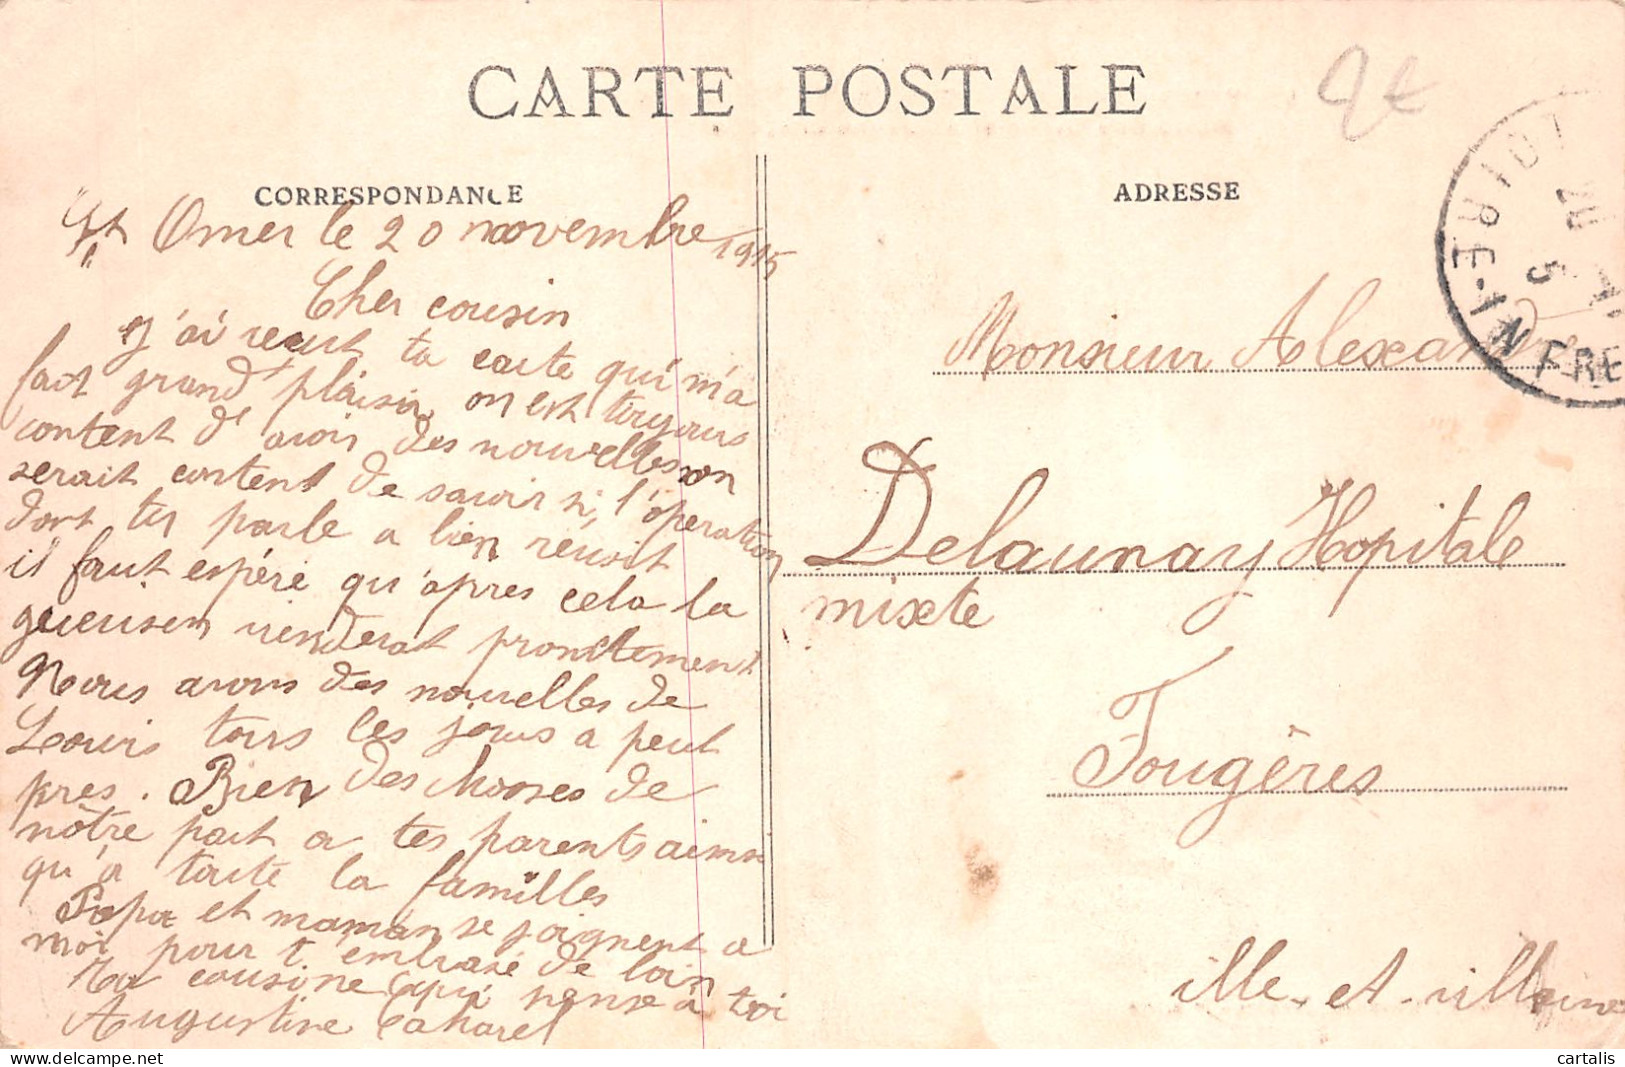 CARTE POSTALE
CORRESPONDANCE
ADRESSE
St Omer le 20 novembre 1915
Cher cousin
j'ai recut ta carte qui m'a
fait grand plaisir, on est toujours
content d'avoir des nouvelles on
serait content de savoir si, l'operation
dont tu parle a bien reusit
il faut espéré qu'après cela la
guerisen vienderat promtement
Nous avons des nouvelles de
Louis tous les jours a peut
pres. Bien des choses de
nôtre part a tes parents ainsi
qu'à toute la familles
Papa et maman se joignent a
moi pour t'embrasé de loin
Ta cousine qui pense à toi
Augustine
Monsieur Alexandre
Delaunay Hopitale
mixte
Fougères
ille-et-villaine
INFRE
cartalis
www.delcampe.net